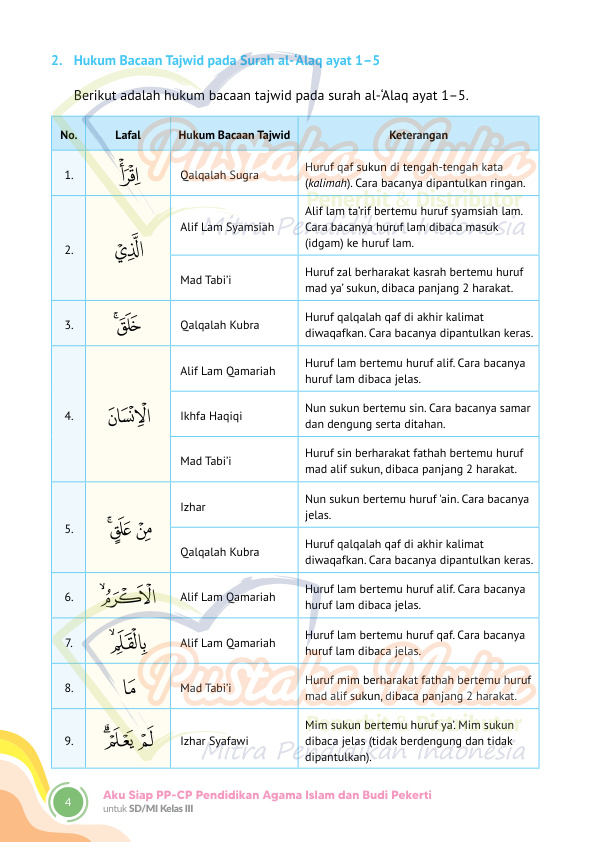 2. Hukum Bacaan Tajwid pada Surah al-‘Alaq ayat 1–5
Berikut adalah hukum bacaan tajwid pada surah al-‘Alaq ayat 1–5.
No. Lafal Hukum Bacaan Tajwid Keterangan
1. اِقْرَأْ Qalqalah Sugra Huruf qaf sukun di tengah-tengah kata
(kalimah). Cara bacanya dipantulkan ringan.
2. الَّذِيْ Alif Lam Syamsiah Alif lam ta’rif bertemu huruf syamsiah lam.
Cara bacanya huruf lam dibaca masuk
(idgam) ke huruf lam.
Mad Tabi’i Huruf zal berharakat kasrah bertemu huruf
mad ya’ sukun, dibaca panjang 2 harakat.
3. خَلَقَۚ Qalqalah Kubra Huruf qalqalah qaf di akhir kalimat
diwaqafkan. Cara bacanya dipantulkan keras.
4. الْاِنْسَانَ Alif Lam Qamariah Huruf lam bertemu huruf alif. Cara bacanya
huruf lam dibaca jelas.
Ikhfa Haqiqi Nun sukun bertemu sin. Cara bacanya samar
dan dengung serta ditahan.
Mad Tabi’i Huruf sin berharakat fathah bertemu huruf
mad alif sukun, dibaca panjang 2 harakat.
5. مِنْ عَلَقٍۚ Izhar Nun sukun bertemu huruf ‘ain. Cara bacanya
jelas.
Qalqalah Kubra Huruf qalqalah qaf di akhir kalimat
diwaqafkan. Cara bacanya dipantulkan keras.
6. الْاَكْرَمُۙ Alif Lam Qamariah Huruf lam bertemu huruf alif. Cara bacanya
huruf lam dibaca jelas.
7. بِالْقَلَمِۙ Alif Lam Qamariah Huruf lam bertemu huruf qaf. Cara bacanya
huruf lam dibaca jelas.
8. مَا Mad Tabi’i Huruf mim berharakat fathah bertemu huruf
mad alif sukun, dibaca panjang 2 harakat.
9. لَمْ يَعْلَمْۗ Izhar Syafawi Mim sukun bertemu huruf ya’. Mim sukun
dibaca jelas (tidak berdengung dan tidak
dipantulkan).
Pustaka Mulia
Penerbit & Distributor
Mitra Pendidikan Indonesia
Pustaka Mulia
Penerbit & Distributor
Mitra Pendidikan Indonesia
4 Aku Siap PP-CP Pendidikan Agama Islam dan Budi Pekerti
untuk SD/MI Kelas III